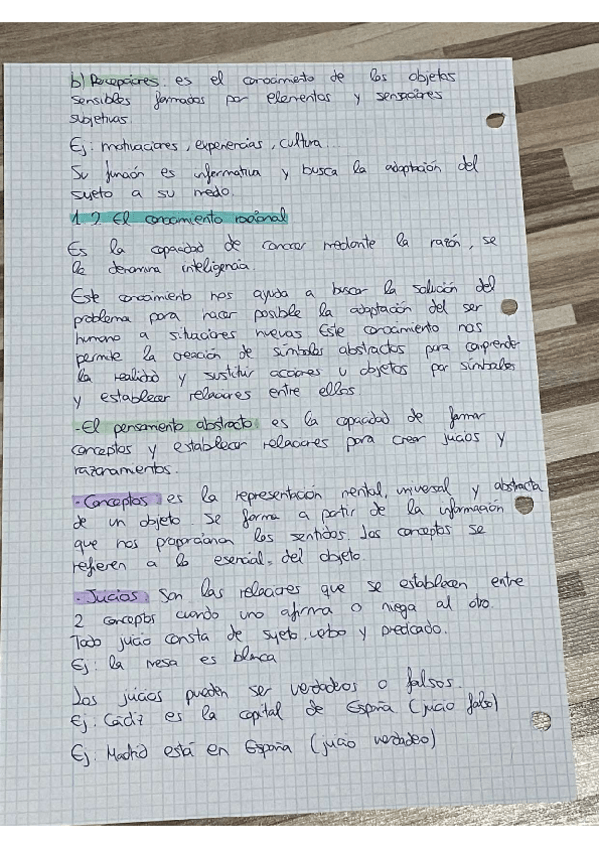 b) Percepciones: es el conocimiento de los objetos
sensibles formados por elementos y sensaciones
subjetivas.
Ej: motivaciones, experiencias, cultura...
Su función es informativa y busca la adaptación del
sujeto a su medio.
1.2. El conocimiento racional
Es la capacidad de conocer mediante la razón, se
le denomina inteligencia.
Este conocimiento nos ayuda a buscar la solución del
problema para hacer posible la adaptación del ser
humano a situaciones nuevas. Este conocimiento nos
permite la creación de símbolos abstractos para comprender
la realidad y sustituir acciones u objetos por símbolos
y establecer relaciones entre ellos.
-El pensamiento abstracto es la capacidad de formar
conceptos y establecer relaciones para crear juicios y
razonamientos.
- Conceptos es la representación mental, universal y abstracta
de un objeto se forma a partir de la información
que nos proporcionan los sentidos. Los conceptos se
refieren a lo esencial del objeto.
- Juicios Son las relaciones que se establecen entre
2 conceptos cuando uno afirma o niega al otro.
Todo juicio consta de sujeto, verbo y predicado.
Ej: la mesa es blanca
Los juicios pueden ser verdaderos o falsos.
Ej: Cádiz es la capital de España (juicio falso)
Ej: Madrid está en España (juicio verdadero)